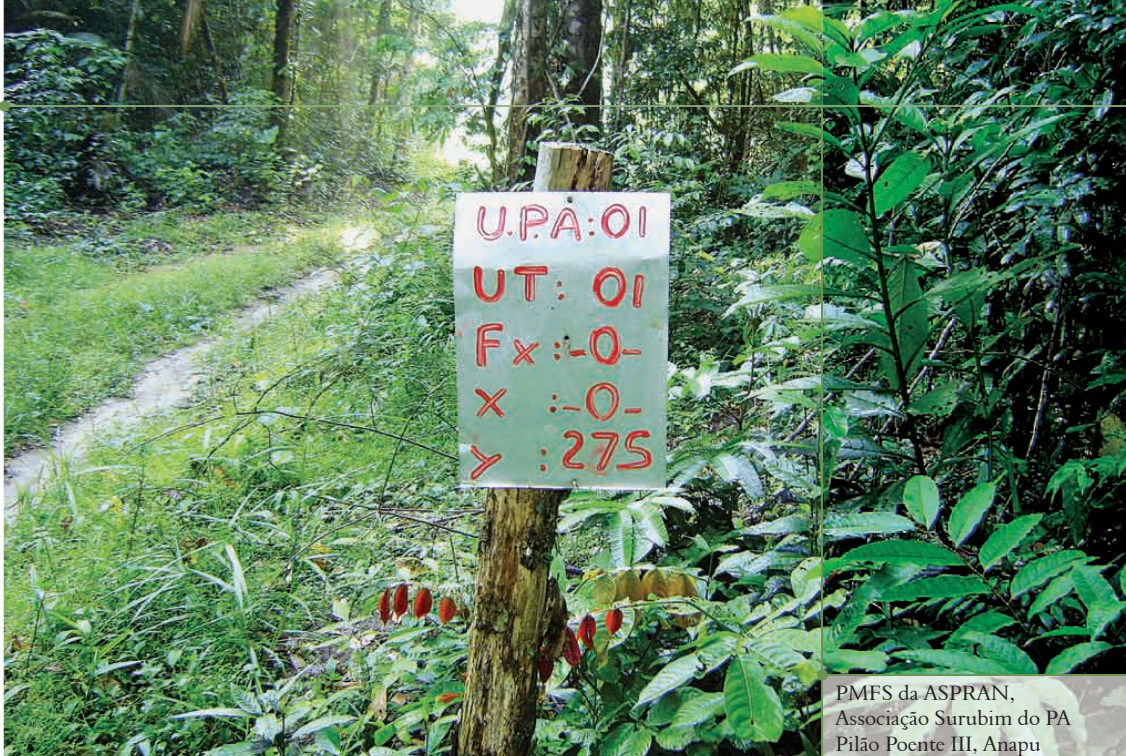 U.P.A:01
UT: 01
Fx:-0-
X :-0-
y :275
PMFS da ASPRAN,
Associação Surubim do PA
Pilão Poente III, Anapu